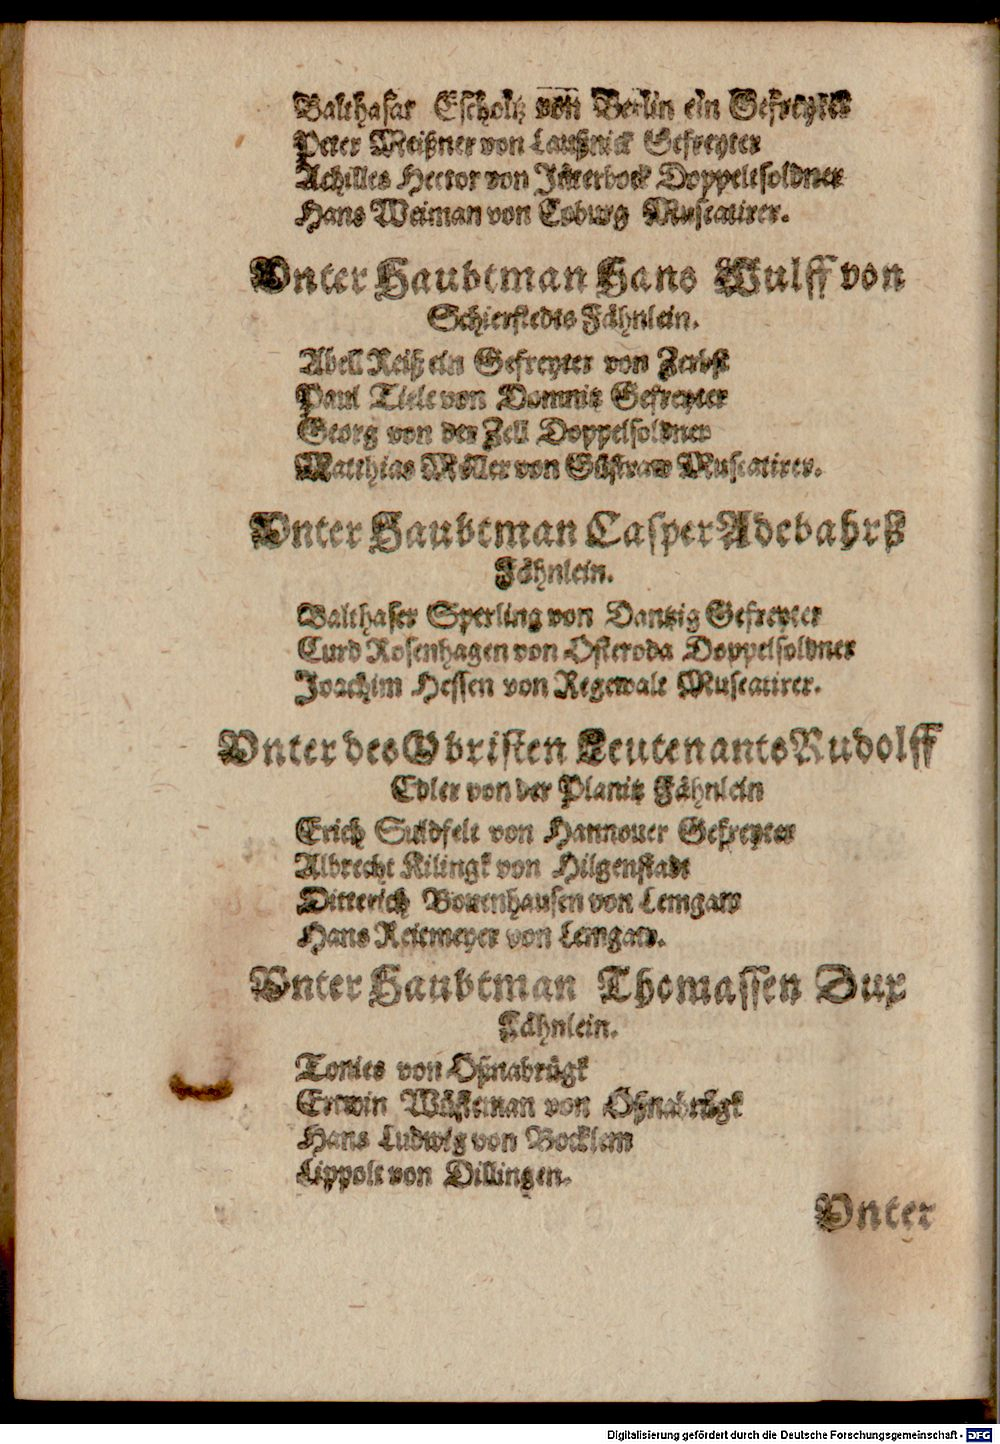 Balthasar Escholtz von Berlin ein Gefreyter
Peter Meißner von Laußnick Gefreyter
Achilles Hector von Jüterbock Doppeltsoldner
Hans Weiman von Coburg Muscatirer.
Vnter Haubtman Hans Wulff von
Schierstedts Fähnlein.
Abell Reiß ein Gefreyter von Zerbst
Paul Tiele von Domnitz Gefreyter
Georg von der Zell Doppelsoldner
Matthias Möller von Güstraw Muscatirer.
Vnter Haubtman Casper Adebahrß
Fähnlein.
Balthaser Sperling von Dantzig Gefreyter
Curd Rosenhagen von Osteroda Doppelsoldner
Joachim Hessen von Regewalt Muscatirer.
Vnter des Obristen Leutenants Rudolff
Edler von der Planitz Fähnlein
Erich Suldfelt von Hannouer Gefreyter
Albrecht Kilingk von Hilgenstadt
Ditterich Bouenhausen von Lemgaw
Hans Reitemeyer von Lemgaw.
Vnter Haubtman Thomassen Dux
Fähnlein.
Tonies von Oßnabrügk
Erwin Wüsteman von Oßnabrügk
Hans Ludwig von Bocklem
Lippolt von Dillingen.
Vnter
Digitalisierung gefördert durch die Deutsche Forschungsgemeinschaft - DFG